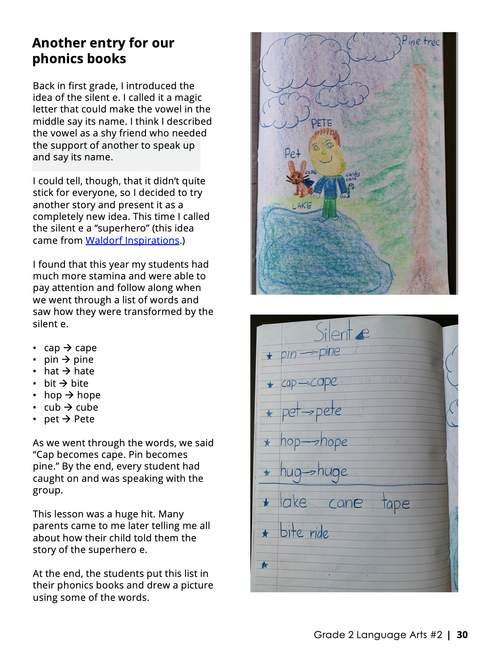 Another entry for our
phonics books
Back in first grade, I introduced the
idea of the silent e. I called it a magic
letter that could make the vowel in the
middle say its name. I think I described
the vowel as a shy friend who needed
the support of another to speak up
and say its name.
I could tell, though, that it didn't quite
stick for everyone, so I decided to try
another story and present it as a
completely new idea. This time I called
the silent e a "superhero" (this idea
came from Waldorf Inspirations.)
I found that this year my students had
much more stamina and were able to
pay attention and follow along when
we went through a list of words and
saw how they were transformed by the
silent e.
• cap → cape
• pin → pine
• hat → hate
• bit → bite
• hop → hope
• cub → cube
• pet → Pete
As we went through the words, we said
"Cap becomes cape. Pin becomes
pine." By the end, every student had
caught on and was speaking with the
group.
This lesson was a huge hit. Many
parents came to me later telling me all
about how their child told them the
story of the superhero e.
At the end, the students put this list in
their phonics books and drew a picture
using some of the words.
Pine tree
PETE
Pet
candy
cane
LAKE
Silent e
★ pin → pine
★ cap → cape
★ pet → pete
★ hop → hope
★ hug → huge
★ lake cane tape
★ bite ride
★
Grade 2 Language Arts #2 | 30